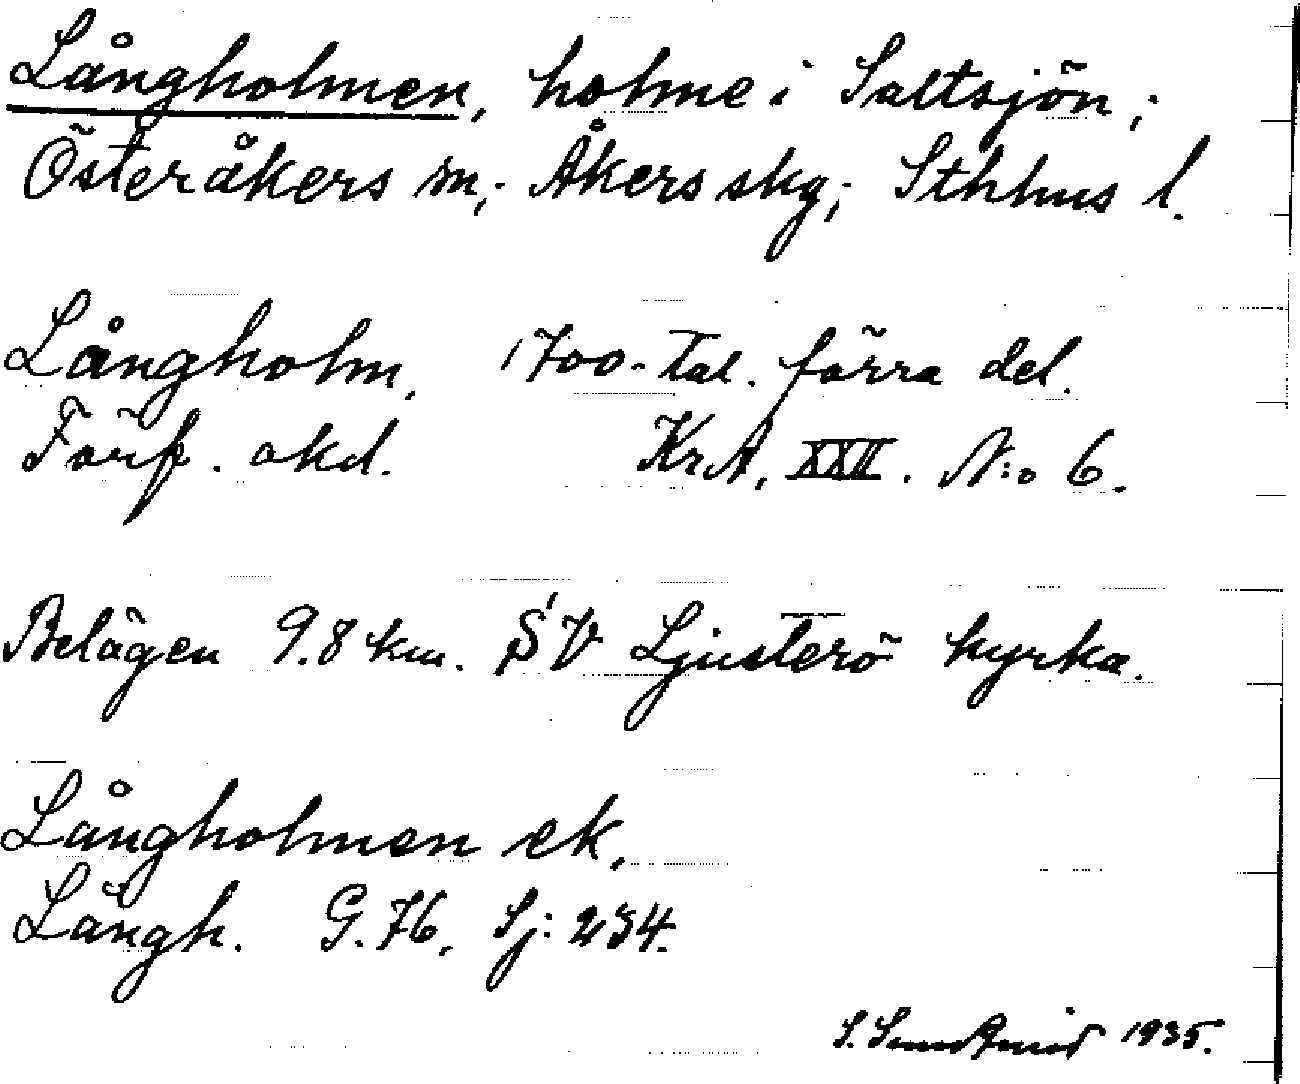 Långholmen, holme i Saltsjön;
Österåkers sn; Åkers skg; Sthlms l.
Långholm. 1700-tal. förra del.
Förf. okd. KrA. XXII. N:o 6.
Belägen 9.8 km. SV Ljusterö kyrka.
Långholmen ek.
Långh. G.76. Sj: 234.
S. Sundqvist 1935.